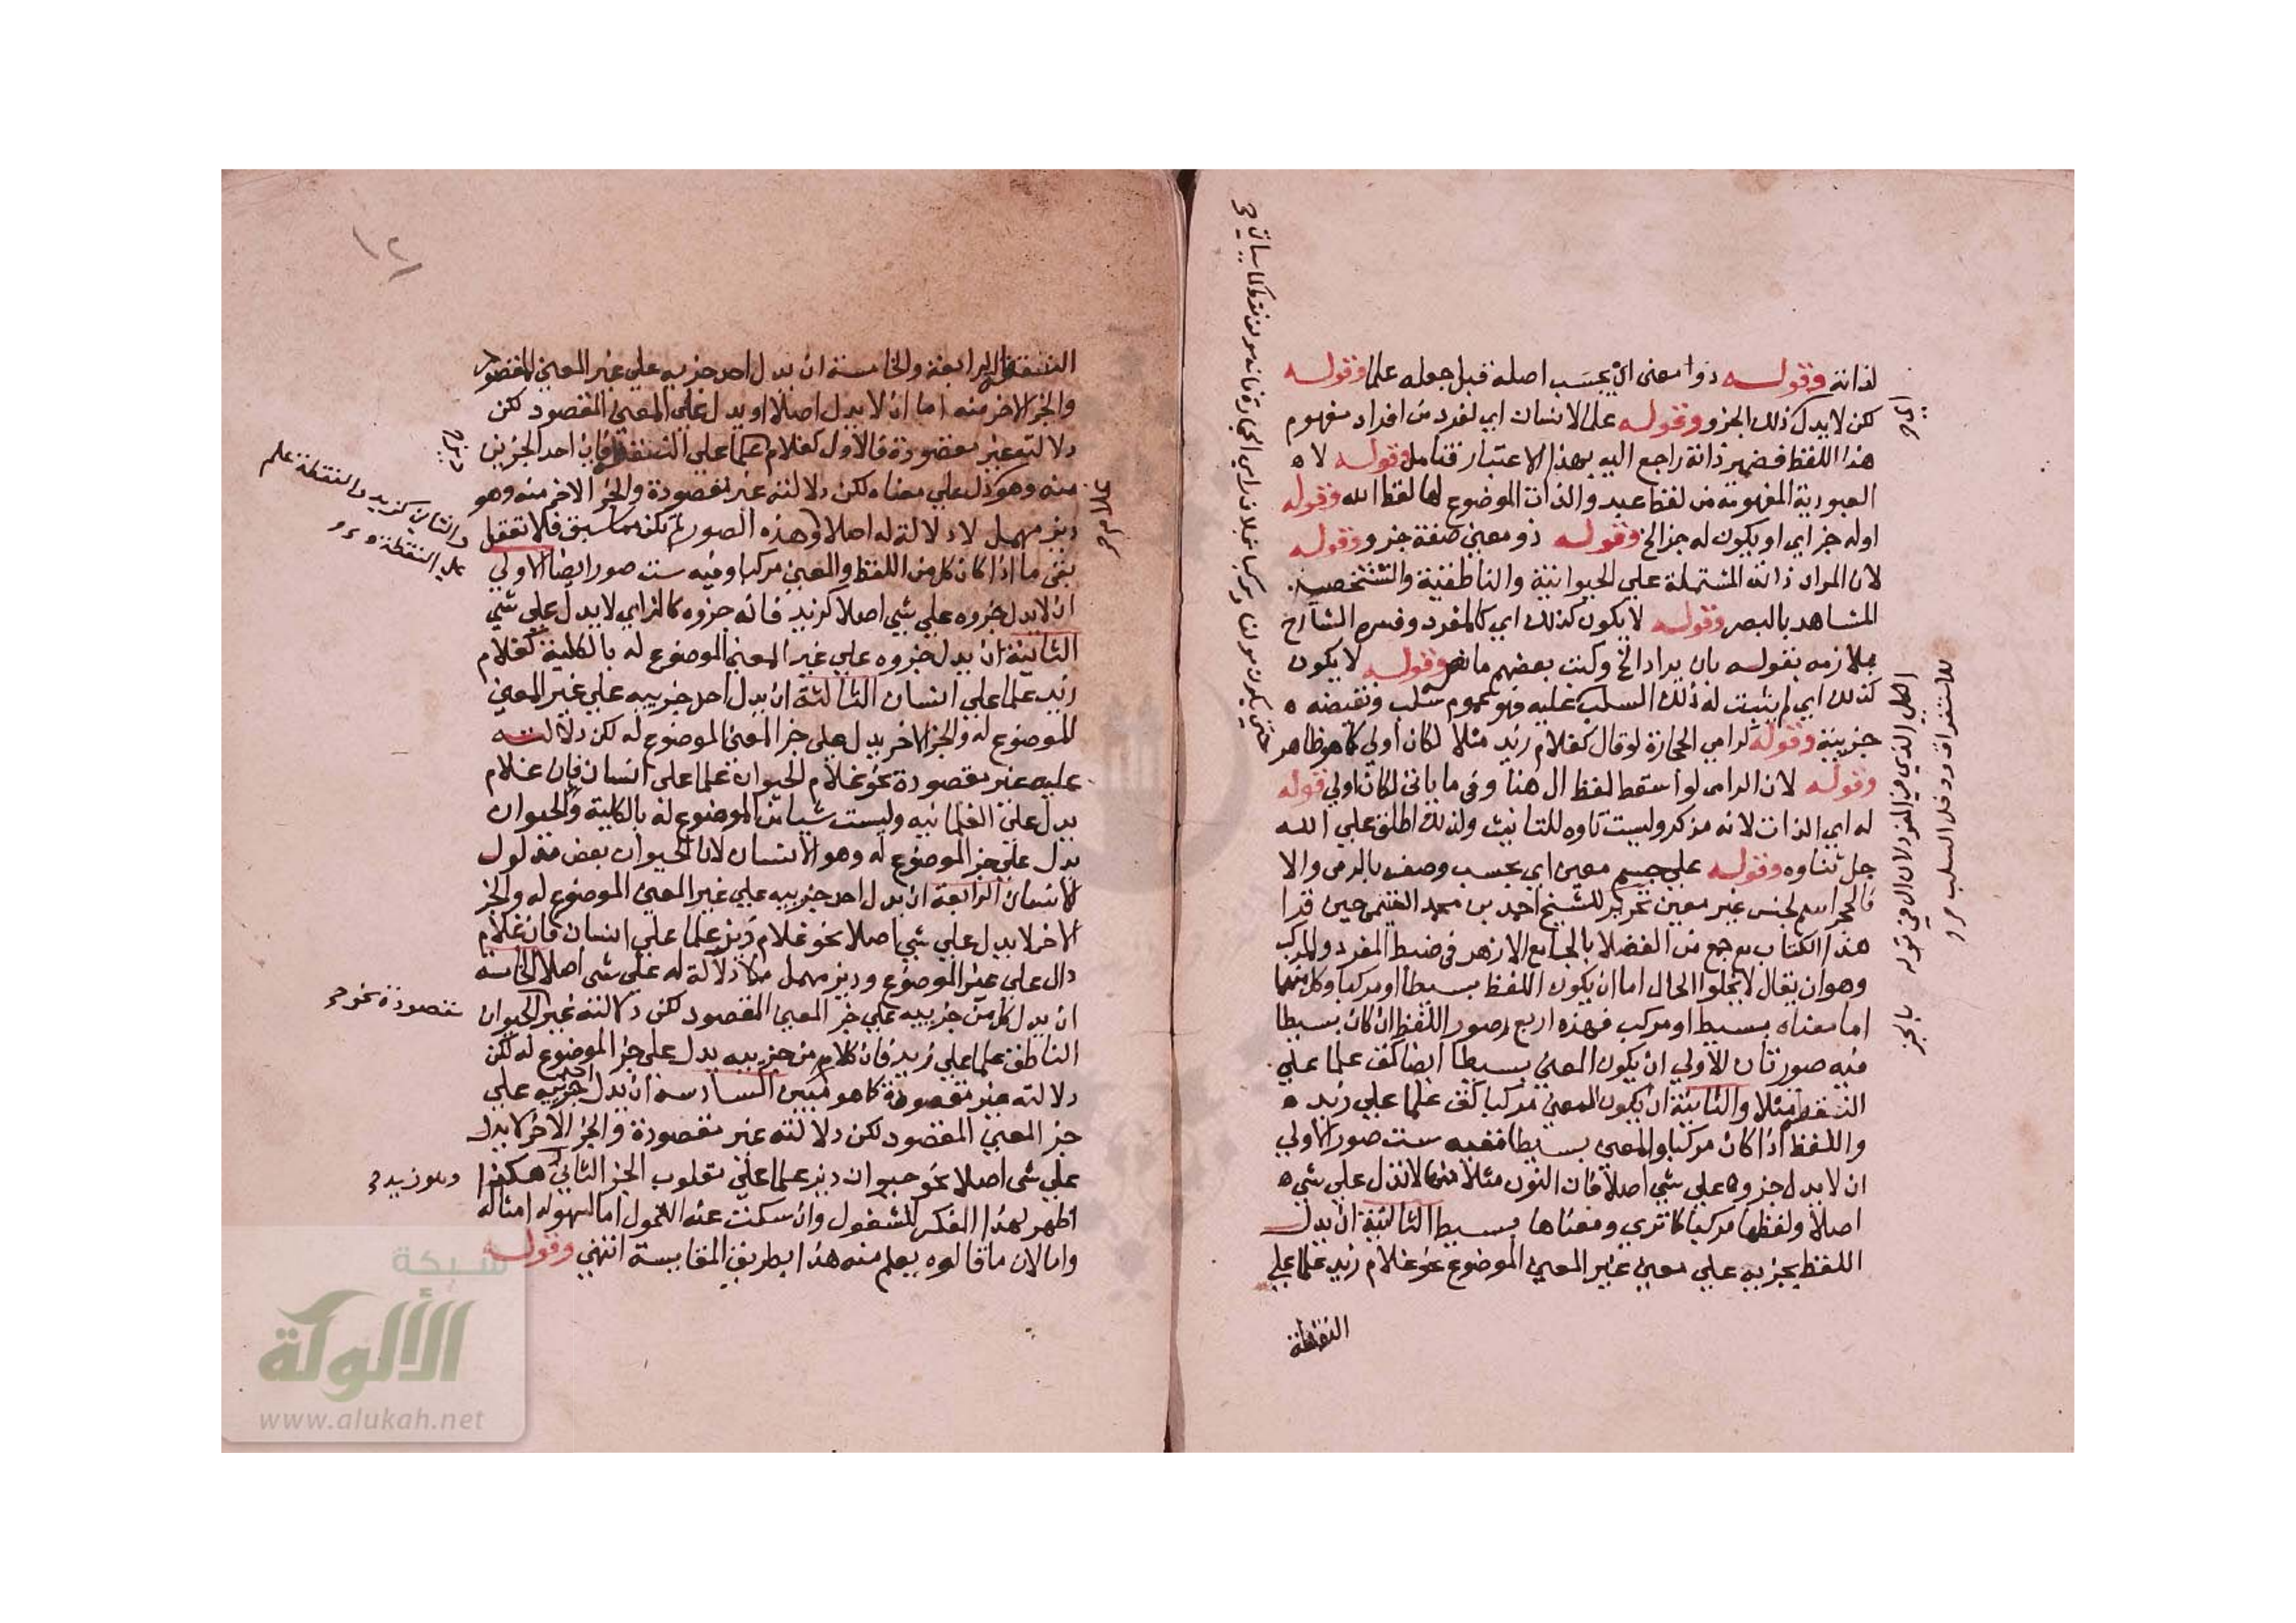 لذاته وقوله ذوا معنى اي بحسب اصله قبل جعله علما وقوله
لكن لا يدل ذلك الجزو وقوله على الانسان اي لفرد من افراد مفهوم
هذا اللفظ فضمير ذاته راجع اليه بهذا الاعتبار فتامل وقوله لا ه
العبودية المفهومة من لفظ عبد والذات الموضوع لها لفظ الله وقوله
اوله جز اي او يكون له جز الخ وقوله ذو معنى صفة جزو وقوله
لان المراد ذاته المشتملة على الحيوانية والناطقية والتشخص
المشاهد بالبصر وقوله لا يكون كذلك اي كالمفرد وفسره الشارح
بملازمه بقوله بان يراد الخ وكتب بعضهم ما نصه وقوله لا يكون
كذلك اي لم يثبت له ذلك السلب عليه فهو عموم سلب ونقيضه ه
جزيية وقوله كرامي الحجارة لو قال كغلام زيد مثلا لكان اولي كما هو ظاهر
وقوله لان الرامي لو اسقط لفظ ال هنا وفي ما ياتي لكان اولي قوله
له اي الذات لانه مذكر وليست تاوه للتانيث ولذلك اطلق علي الله
جل ثناوه وقوله علي جسم معين اي بحسب وصفه بالرمي والا
فالحجر اسم لجنس غير معين تحرير للشيخ احمد بن محمد الغنيمي حين قرا
هذا الكتاب مع جمع من الفضلا بالجامع الازهر في ضبط المفرد والمركب
وهو ان يقال لا يخلوا الحال اما ان يكون اللفظ بسيطا او مركبا وكل منهما
اما معناه بسيط او مركب فهذه اربع صور اللفظ ان كان بسيطا
فيه صورتان الاولي ان يكون المعني بسيطا ايضا كق علما علي
النقطة مثلا والثانية ان يكون المعني مركبا كق علما علي زيد ه
واللفظ اذا كان مركبا والمعني بسيطا ففيه ست صور الاولي
ان لا يدل جزوه علي شي اصلا فان النون مثلا منها لا تدل علي شي ه
اصلا ولفظها مركب كما تري ومعناها بسيط الثانية ان يدل
اللفظ بجزييه علي معني غير المعني الموضوع نحو غلام زيد علما علي
النقطة
اي ح
الكلي الذي في المفرد لان ال في قوله بالجز
للاستغراق ودخل السلب
١٢
النقطة الرابعة والخامسة ان يدل احد جزييه علي غير المعني المقصود
والجز الاخر منه اما ان لا يدل اصلا او يدل علي المعني المقصود لكن
دلالته غير مقصودة فالاول كغلام علما علي النقطة فان احد الجزين
منه وهو يدل علي معناه لكن دلالته غير مقصودة والجز الاخر منه وهو
ديز مهمل لا دلالة له اصلا وهذه الصور لم تكن مما سبق فلا تغفل
بقي ما اذا كان كل من اللفظ والمعني مركبا وفيه ست صور ايضا الاولي
ان لا يدل جزوه علي شي اصلا كزيد فانه جزوه كالزاي لا يدل علي شي
الثانية ان يدل جزوه علي غير المعني الموضوع له بالكلية كغلام
زيد علما علي انسان الثالثة ان يدل احد جزييه علي غير المعني
الموضوع له والجز الاخر يدل علي جز المعني الموضوع له لكن دلالته
عليه غير مقصودة نحو غلام الحيوان علما علي انسان فان غلام
يدل علي الغلمانيه وليست شيا من الموضوع له بالكلية والحيوان
يدل علي جز الموضوع له وهو الانسان لان الحيوان بعض مدلول
الانسان الرابعة ان يدل احد جزييه علي غير المعني الموضوع له والجز
الاخر لا يدل علي شي اصلا نحو غلام ديز علما علي انسان فان غلام
دال علي غير الموضوع وديز مهمل لا دلالة له علي شي اصلا الخامسة
ان يدل كل من جزييه علي جز المعني المقصود لكن دلالته غير الحيوان
الناطق علما علي زيد فان كلا من جزييه يدل علي جز الموضوع له لكن
دلالته غير مقصودة كما هو مبين السادسة ان يدل احد جزييه علي
جز المعني المقصود لكن دلالته غير مقصودة والجز الاخر لا يدل
علي شي اصلا نحو حيوان ديز علما علي مقلوب الجز الثاني هكذا
اظهر لهذا الفكر المشغول وان سكنت عنه الفحول اما لسهولة امثاله
واما لان ما قالوه يعلم منه هذا بطريق المقايسة انتهي وقوله
والثاني كزيد والنقطة علم
علي النقطة
مقصودة نحو ح
وهو زيد ح
شبكة
الألوكة
www.alukah.net